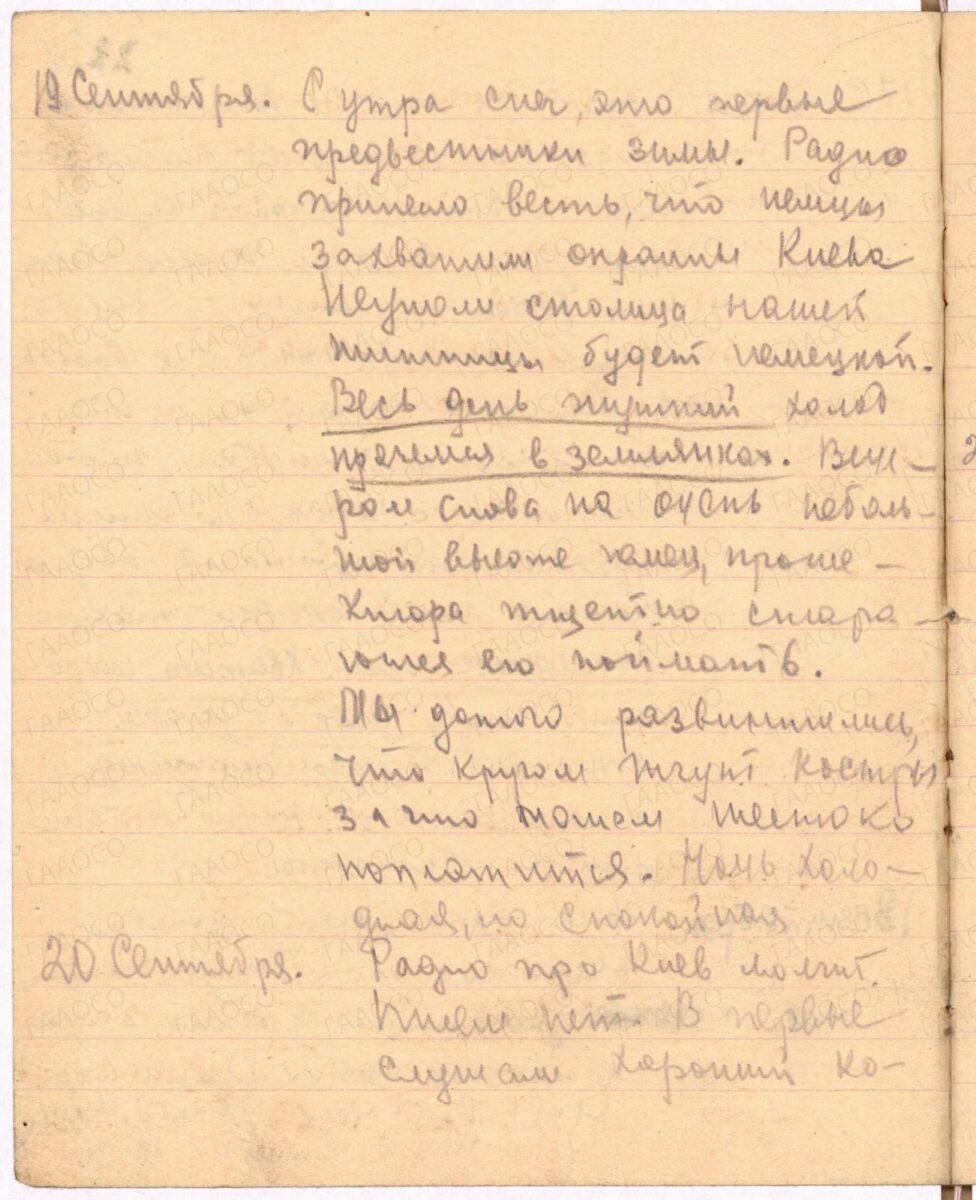 19 Сентября. С утра снег, это первые
предвестники зимы. Радио
принесло весть, что немцы
захватили окраины Киева
Неужели столица нашей
житницы будет немецкой.
Весь день жуткий холод
прячемся в землянках. Вече-
ром снова на очень неболь-
шой высоте немец, проже-
ктора тщетно стара-
ются его поймать.
Мы до того развинтились,
что кругом жгут костры
за что можем жестоко
поплатится. Ночь холо-
дная, но спокойная
20 Сентября. Радио про Киев молчит.
Писем нет. В первые
слушали хороший ко-